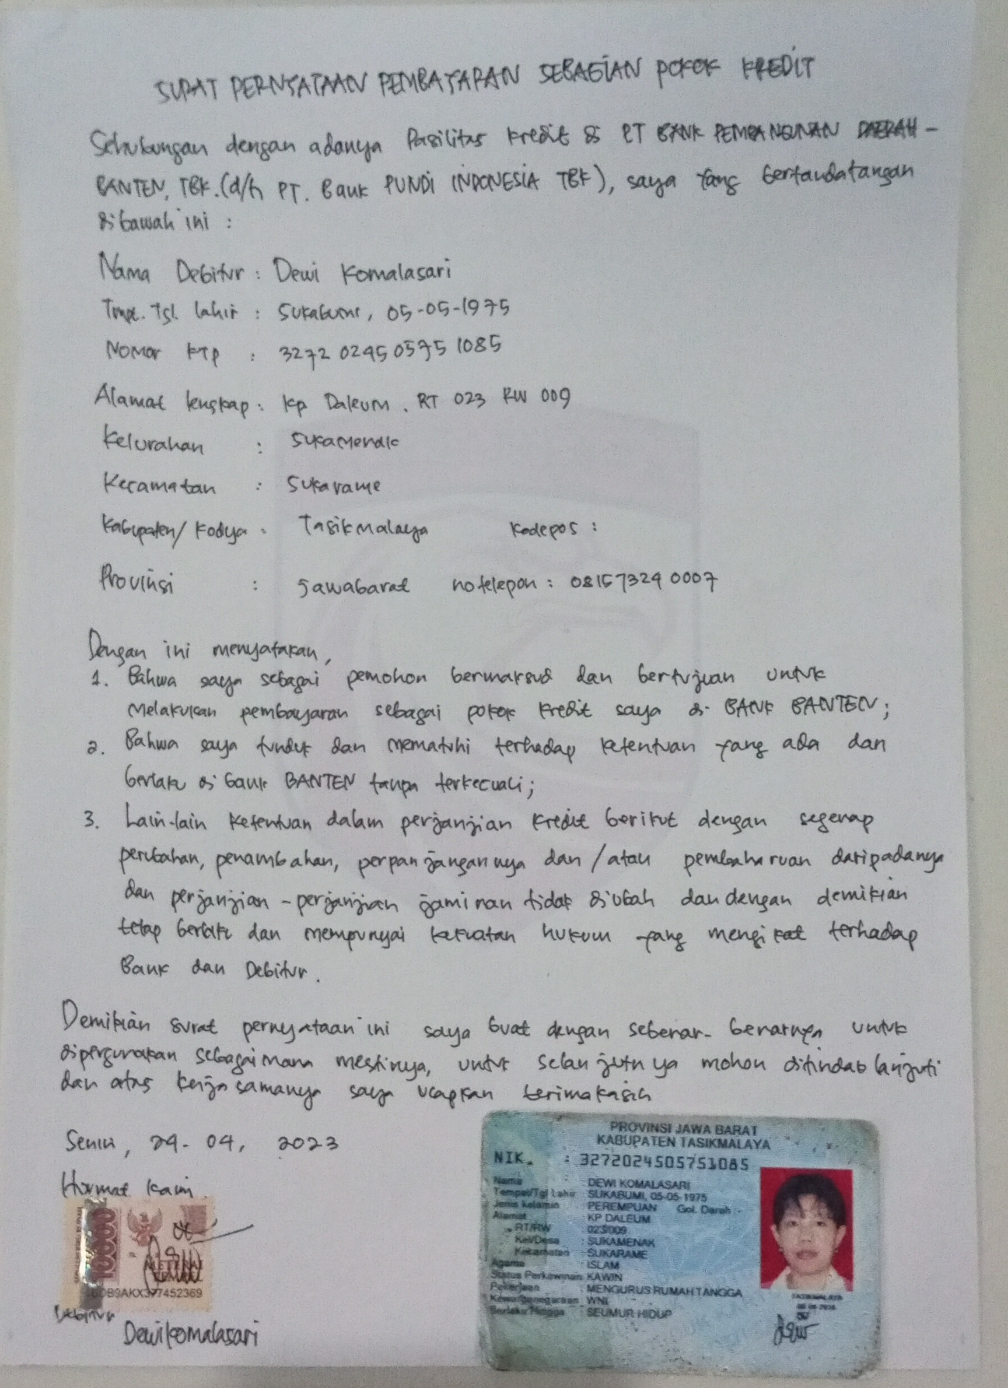 SURAT PERNYATAAN PEMBAYARAN SEBAGIAN POKOK KREDIT
Sehubungan dengan adanya Pasilitas kredit di PT BANK PEMBANGUNAN DAERAH -
BANTEN, TBK. (d/h PT. Bank PUNDI INDONESIA TBK), saya yang bertandatangan
dibawah ini :
Nama Debitur : Dewi Komalasari
Tmpt. Tgl. lahir : Sukabumi, 05-05-1975
Nomor KTP : 3272 0245 0575 1085
Alamat lengkap : Kp Daleum. RT 023 RW 009
Kelurahan : Sukamenak
Kecamatan : Sukarame
Kabupaten/ Kodya : Tasikmalaya Kodepos :
Provinsi : Jawabarat no telepon : 081573240007
Dengan ini menyatakan,
1. Bahwa saya sebagai pemohon bermaksud dan bertujuan untuk
melakukan pembayaran sebagai pokok kredit saya di BANK BANTEN;
2. Bahwa saya tunduk dan mematuhi terhadap ketentuan yang ada dan
berlaku di bank BANTEN tanpa terkecuali;
3. Lain-lain ketentuan dalam perjanjian kredit berikut dengan segenap
perubahan, penambahan, perpanjangannya dan /atau pembaharuan daripadanya
dan perjanjian - perjanjian jaminan tidak diubah dan dengan demikian
tetap berlaku dan mempunyai kekuatan hukum yang mengikat terhadap
Bank dan Debitur.
Demikian surat pernyataan ini saya buat dengan sebenar- benarnya untuk
dipergunakan sebagaimana mestinya, untuk selanjutnya mohon ditindak lanjuti
dan atas kerjasamanya saya ucapkan terimakasih
Senin, 24- 04, 2023
Hormat kami
10000
METERAI
TEMPEL
Debitur
Dewi komalasari
PROVINSI JAWA BARAT
KABUPATEN TASIKMALAYA
NIK. : 3272024505751085
Nama : DEWI KOMALASARI
Tempat/Tgl Lahir : SUKABUMI, 05-05-1975
Jenis kelamin : PEREMPUAN Gol. Darah : -
Alamat : KP DALEUM
RT/RW : 023/009
Kel/Desa : SUKAMENAK
Kecamatan : SUKARAME
Agama : ISLAM
Status Perkawinan: KAWIN
Pekerjaan : MENGURUS RUMAH TANGGA
Kewarganegaraan: WNI
Berlaku Hingga : SEUMUR HIDUP
TASIKMALAYA